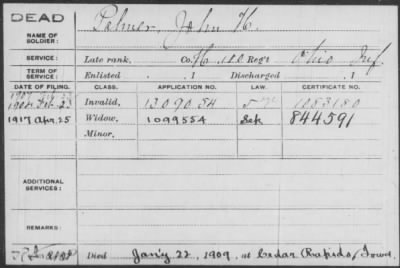 DEAD
NAME OF SOLDIER: Palmer, John H.
SERVICE: Late rank, Co. H, 180 Reg't Ohio Inf.
TERM OF SERVICE: Enlisted , 1 Discharged , 1
DATE OF FILING. CLASS. APPLICATION NO. LAW. CERTIFICATE NO.
1904 Feb. 23 Invalid, 1309054 1083180
1917 Apr. 25 Widow, 1099554 Sek 844591
Minor,
ADDITIONAL SERVICES:
REMARKS:
Died Jan'y 22, 1909, at Cedar Rapids, Iowa